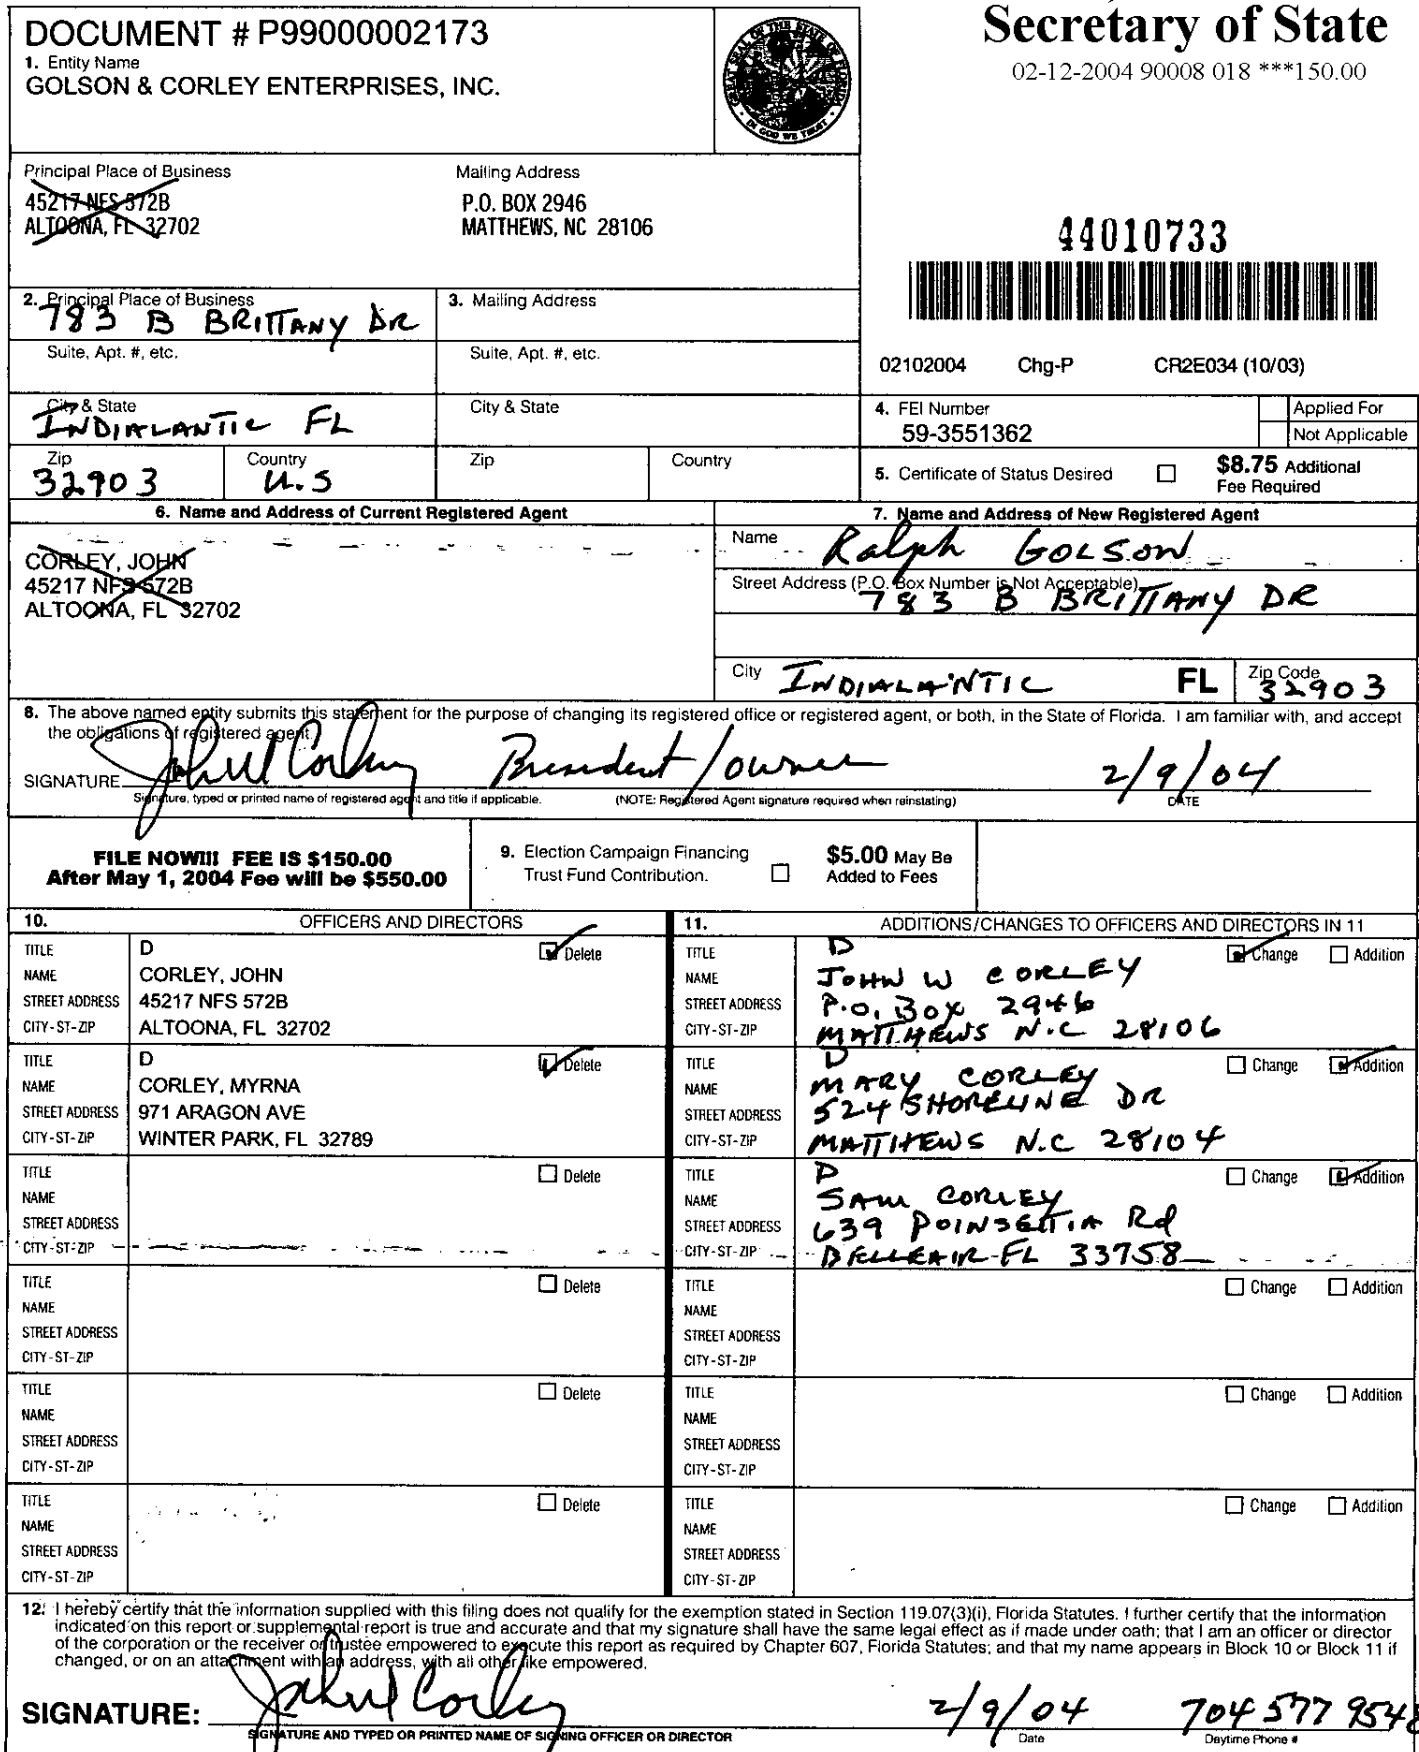 DOCUMENT # P99000002173
1. Entity Name
GOLSON & CORLEY ENTERPRISES, INC.
Secretary of State
02-12-2004 90008 018 ***150.00
Principal Place of Business
45217 NFS 572B
ALTOONA, FL 32702
Mailing Address
P.O. BOX 2946
MATTHEWS, NC 28106
44010733
2. Principal Place of Business
783 B BRITTANY DR
3. Mailing Address
Suite, Apt. #, etc.
Suite, Apt. #, etc.
02102004 Chg-P CR2E034 (10/03)
City & State
INDIALANTIC FL
City & State
4. FEI Number
59-3551362
Applied For
Not Applicable
Zip
32903
Country
U.S
Zip
Country
5. Certificate of Status Desired
$8.75 Additional
Fee Required
6. Name and Address of Current Registered Agent
CORLEY, JOHN
45217 NFS 572B
ALTOONA, FL 32702
7. Name and Address of New Registered Agent
Name
Ralph GOLSON
Street Address (P.O. Box Number is Not Acceptable)
783 B BRITTANY DR
City INDIALANTIC FL Zip Code 32903
8. The above named entity submits this statement for the purpose of changing its registered office or registered agent, or both, in the State of Florida. I am familiar with, and accept
the obligations of registered agent.
SIGNATURE John W Corley President/owner 2/9/04
Signature, typed or printed name of registered agent and title if applicable. (NOTE: Registered Agent signature required when reinstating) DATE
FILE NOW!!! FEE IS $150.00
After May 1, 2004 Fee will be $550.00
9. Election Campaign Financing
Trust Fund Contribution.
$5.00 May Be
Added to Fees
10. OFFICERS AND DIRECTORS
TITLE D Delete
NAME CORLEY, JOHN
STREET ADDRESS 45217 NFS 572B
CITY-ST-ZIP ALTOONA, FL 32702
TITLE D Delete
NAME CORLEY, MYRNA
STREET ADDRESS 971 ARAGON AVE
CITY-ST-ZIP WINTER PARK, FL 32789
TITLE Delete
NAME
STREET ADDRESS
CITY-ST-ZIP
TITLE Delete
NAME
STREET ADDRESS
CITY-ST-ZIP
TITLE Delete
NAME
STREET ADDRESS
CITY-ST-ZIP
TITLE Delete
NAME
STREET ADDRESS
CITY-ST-ZIP
11. ADDITIONS/CHANGES TO OFFICERS AND DIRECTORS IN 11
TITLE D Change Addition
NAME JOHN W CORLEY
STREET ADDRESS P.O. BOX 2946
CITY-ST-ZIP MATTHEWS N.C 28106
TITLE D Change Addition
NAME MARY CORLEY
STREET ADDRESS 524 SHORELINE DR
CITY-ST-ZIP MATTHEWS N.C 28104
TITLE D Change Addition
NAME SAM CORLEY
STREET ADDRESS 639 POINSETTIA Rd
CITY-ST-ZIP BELLEAIR FL 33758
TITLE Change Addition
NAME
STREET ADDRESS
CITY-ST-ZIP
TITLE Change Addition
NAME
STREET ADDRESS
CITY-ST-ZIP
TITLE Change Addition
NAME
STREET ADDRESS
CITY-ST-ZIP
12. I hereby certify that the information supplied with this filing does not qualify for the exemption stated in Section 119.07(3)(i), Florida Statutes. I further certify that the information
indicated on this report or supplemental report is true and accurate and that my signature shall have the same legal effect as if made under oath; that I am an officer or director
of the corporation or the receiver or trustee empowered to execute this report as required by Chapter 607, Florida Statutes; and that my name appears in Block 10 or Block 11 if
changed, or on an attachment with an address, with all other like empowered.
SIGNATURE: John W Corley 2/9/04 704 577 9548
SIGNATURE AND TYPED OR PRINTED NAME OF SIGNING OFFICER OR DIRECTOR Date Daytime Phone #